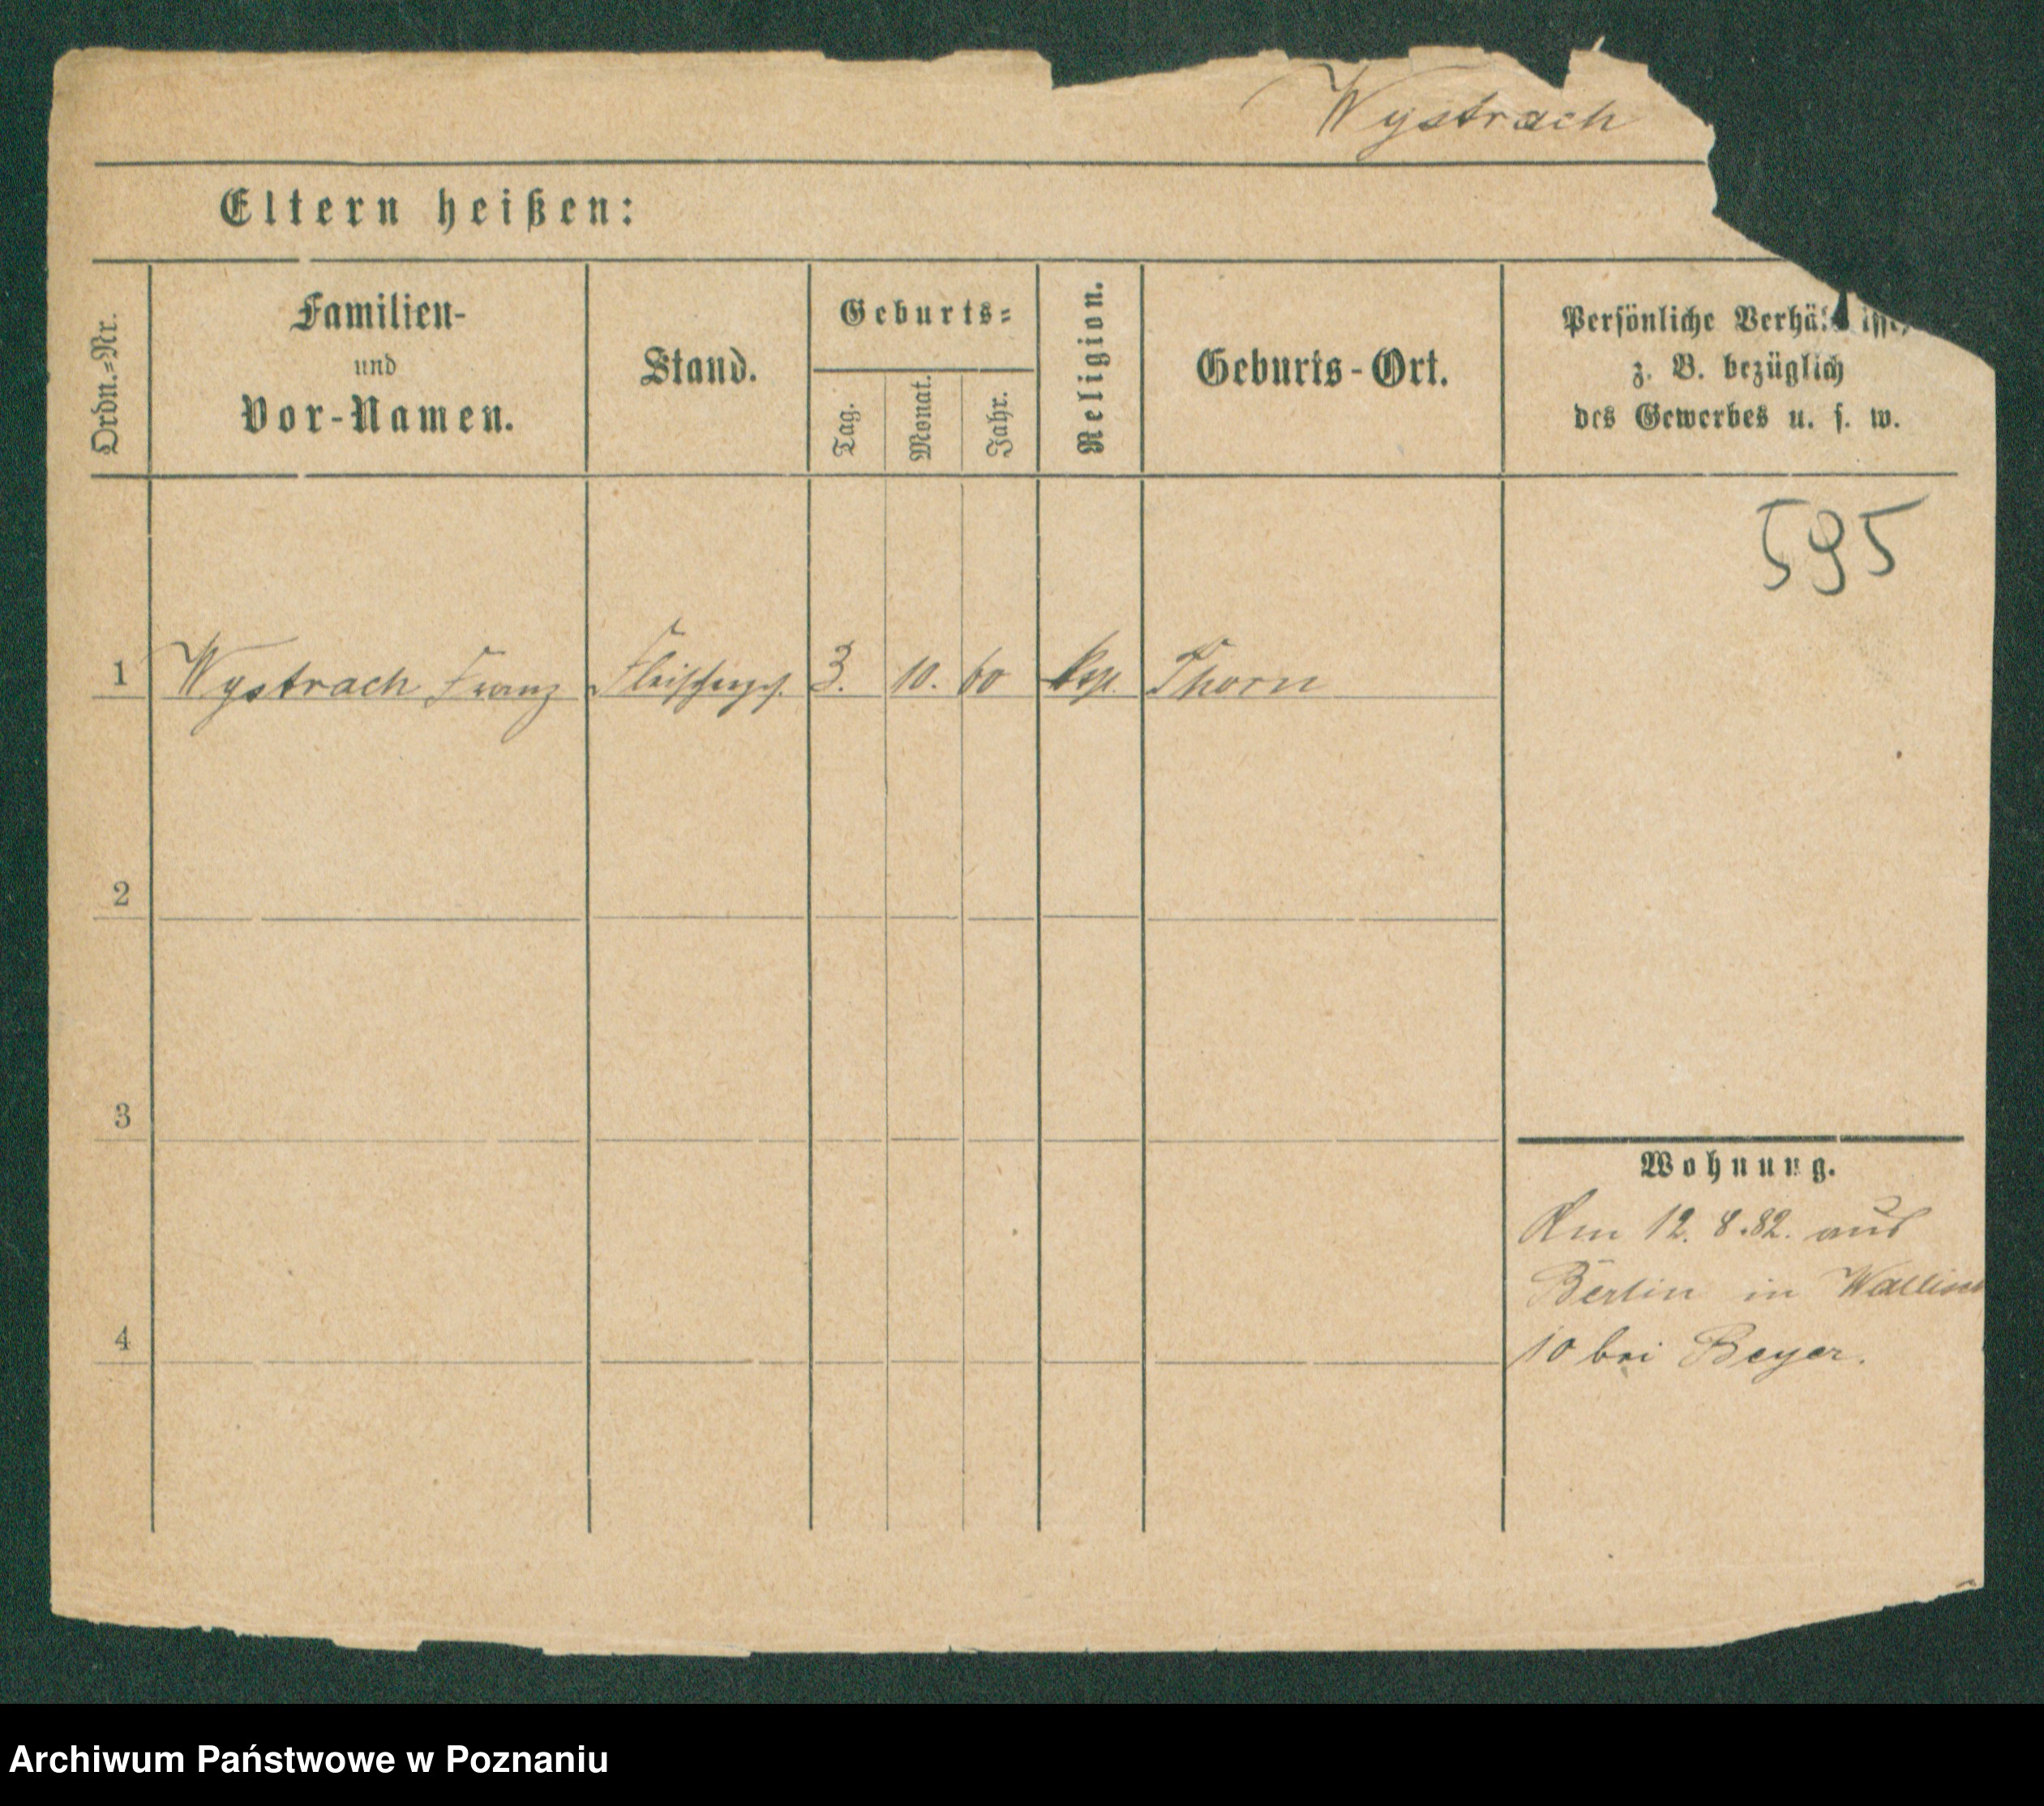 Wystrach
Eltern heißen:
Ordn.=Nr.
Familien-
und
Vor-Namen.
Stand.
Geburts=
Tag.
Monat.
Jahr.
Religion.
Geburts-Ort.
Persönliche
z. B. bezüglich
des Gewerbes u. s. w.
595
1 Wystrach Franz 3. 10. 60 Thorn
2
3
4
Wohnung.
Am 12. 8. 82. aus
Berlin in Wallisch
10 bei Beyer.
Archiwum Państwowe w Poznaniu